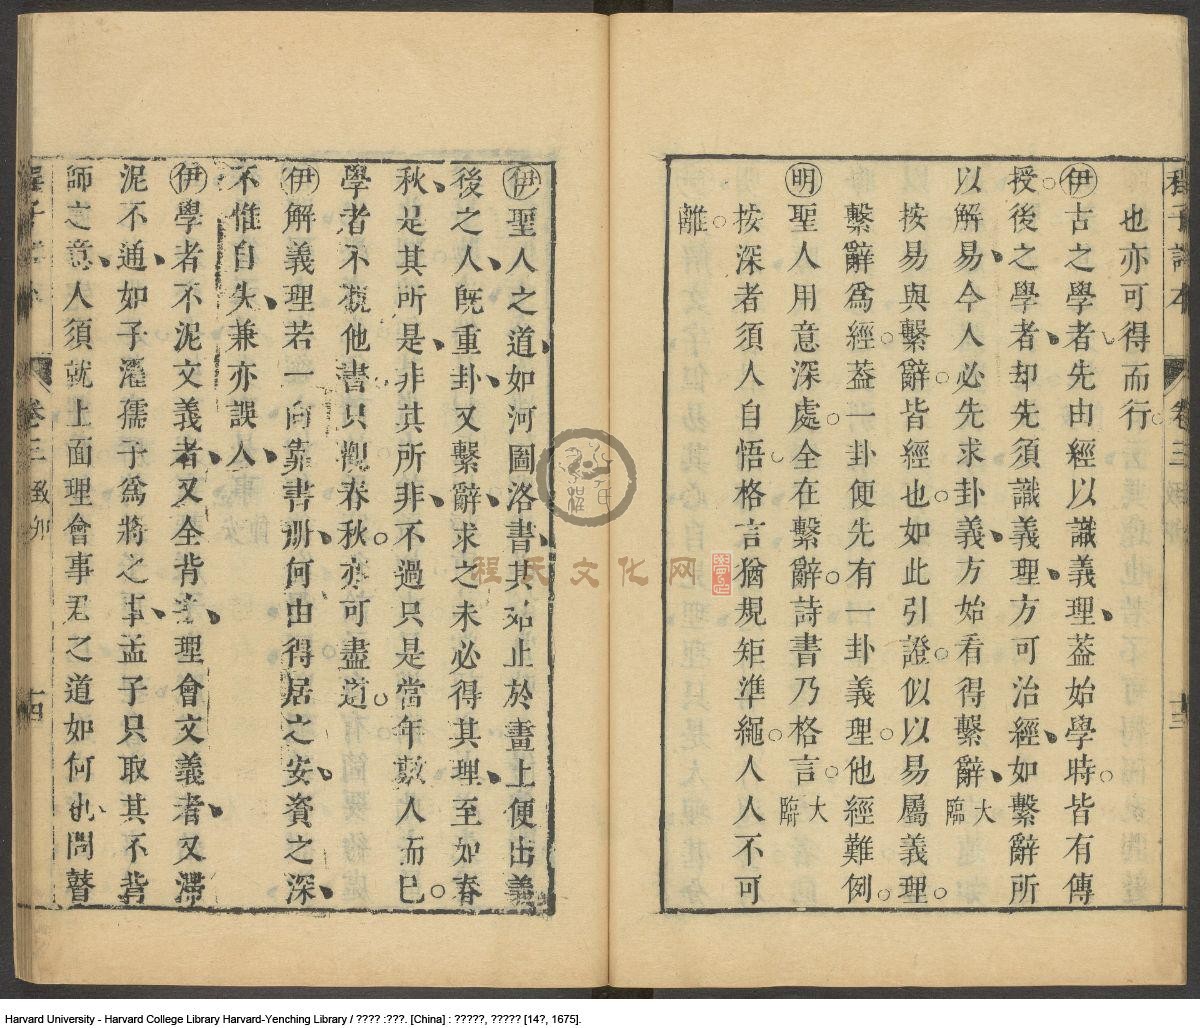 程子詳本 卷三 致知 十三
也亦可得而行
伊古之學者先由經以識義理葢始學時皆有傳
授後之學者却先須識義理方可治經如繫辭所
以解易今人必先求卦義方始看得繫辭大臨
按易與繫辭皆經也如此引證似以易屬義理
繫辭爲經葢一卦便先有一卦義理他經難例
明聖人用意深處全在繫辭詩書乃格言大臨
按深者須人自悟格言猶規矩準繩人人不可
離
伊聖人之道如河圖洛書其始止於畫上便出義
後之人旣重卦又繫辭求之未必得其理至如春
秋是其所是非其所非不過只是當年數人而已
學者不觀他書只觀春秋亦可盡道
伊解義理若一向靠書册何由得居之安資之深
不惟自失兼亦誤人
伊學者不泥文義者又全背却理會文義者又滯
泥不通如子濯孺子爲將之事孟子只取其不背
師之意人須就上面理會事君之道如何也問瞽
卷三 致知 十四
程氏文化网
程氏